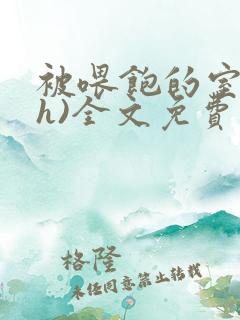 被喂饱的室
h)全文免费
格隆
未经同意禁止转载